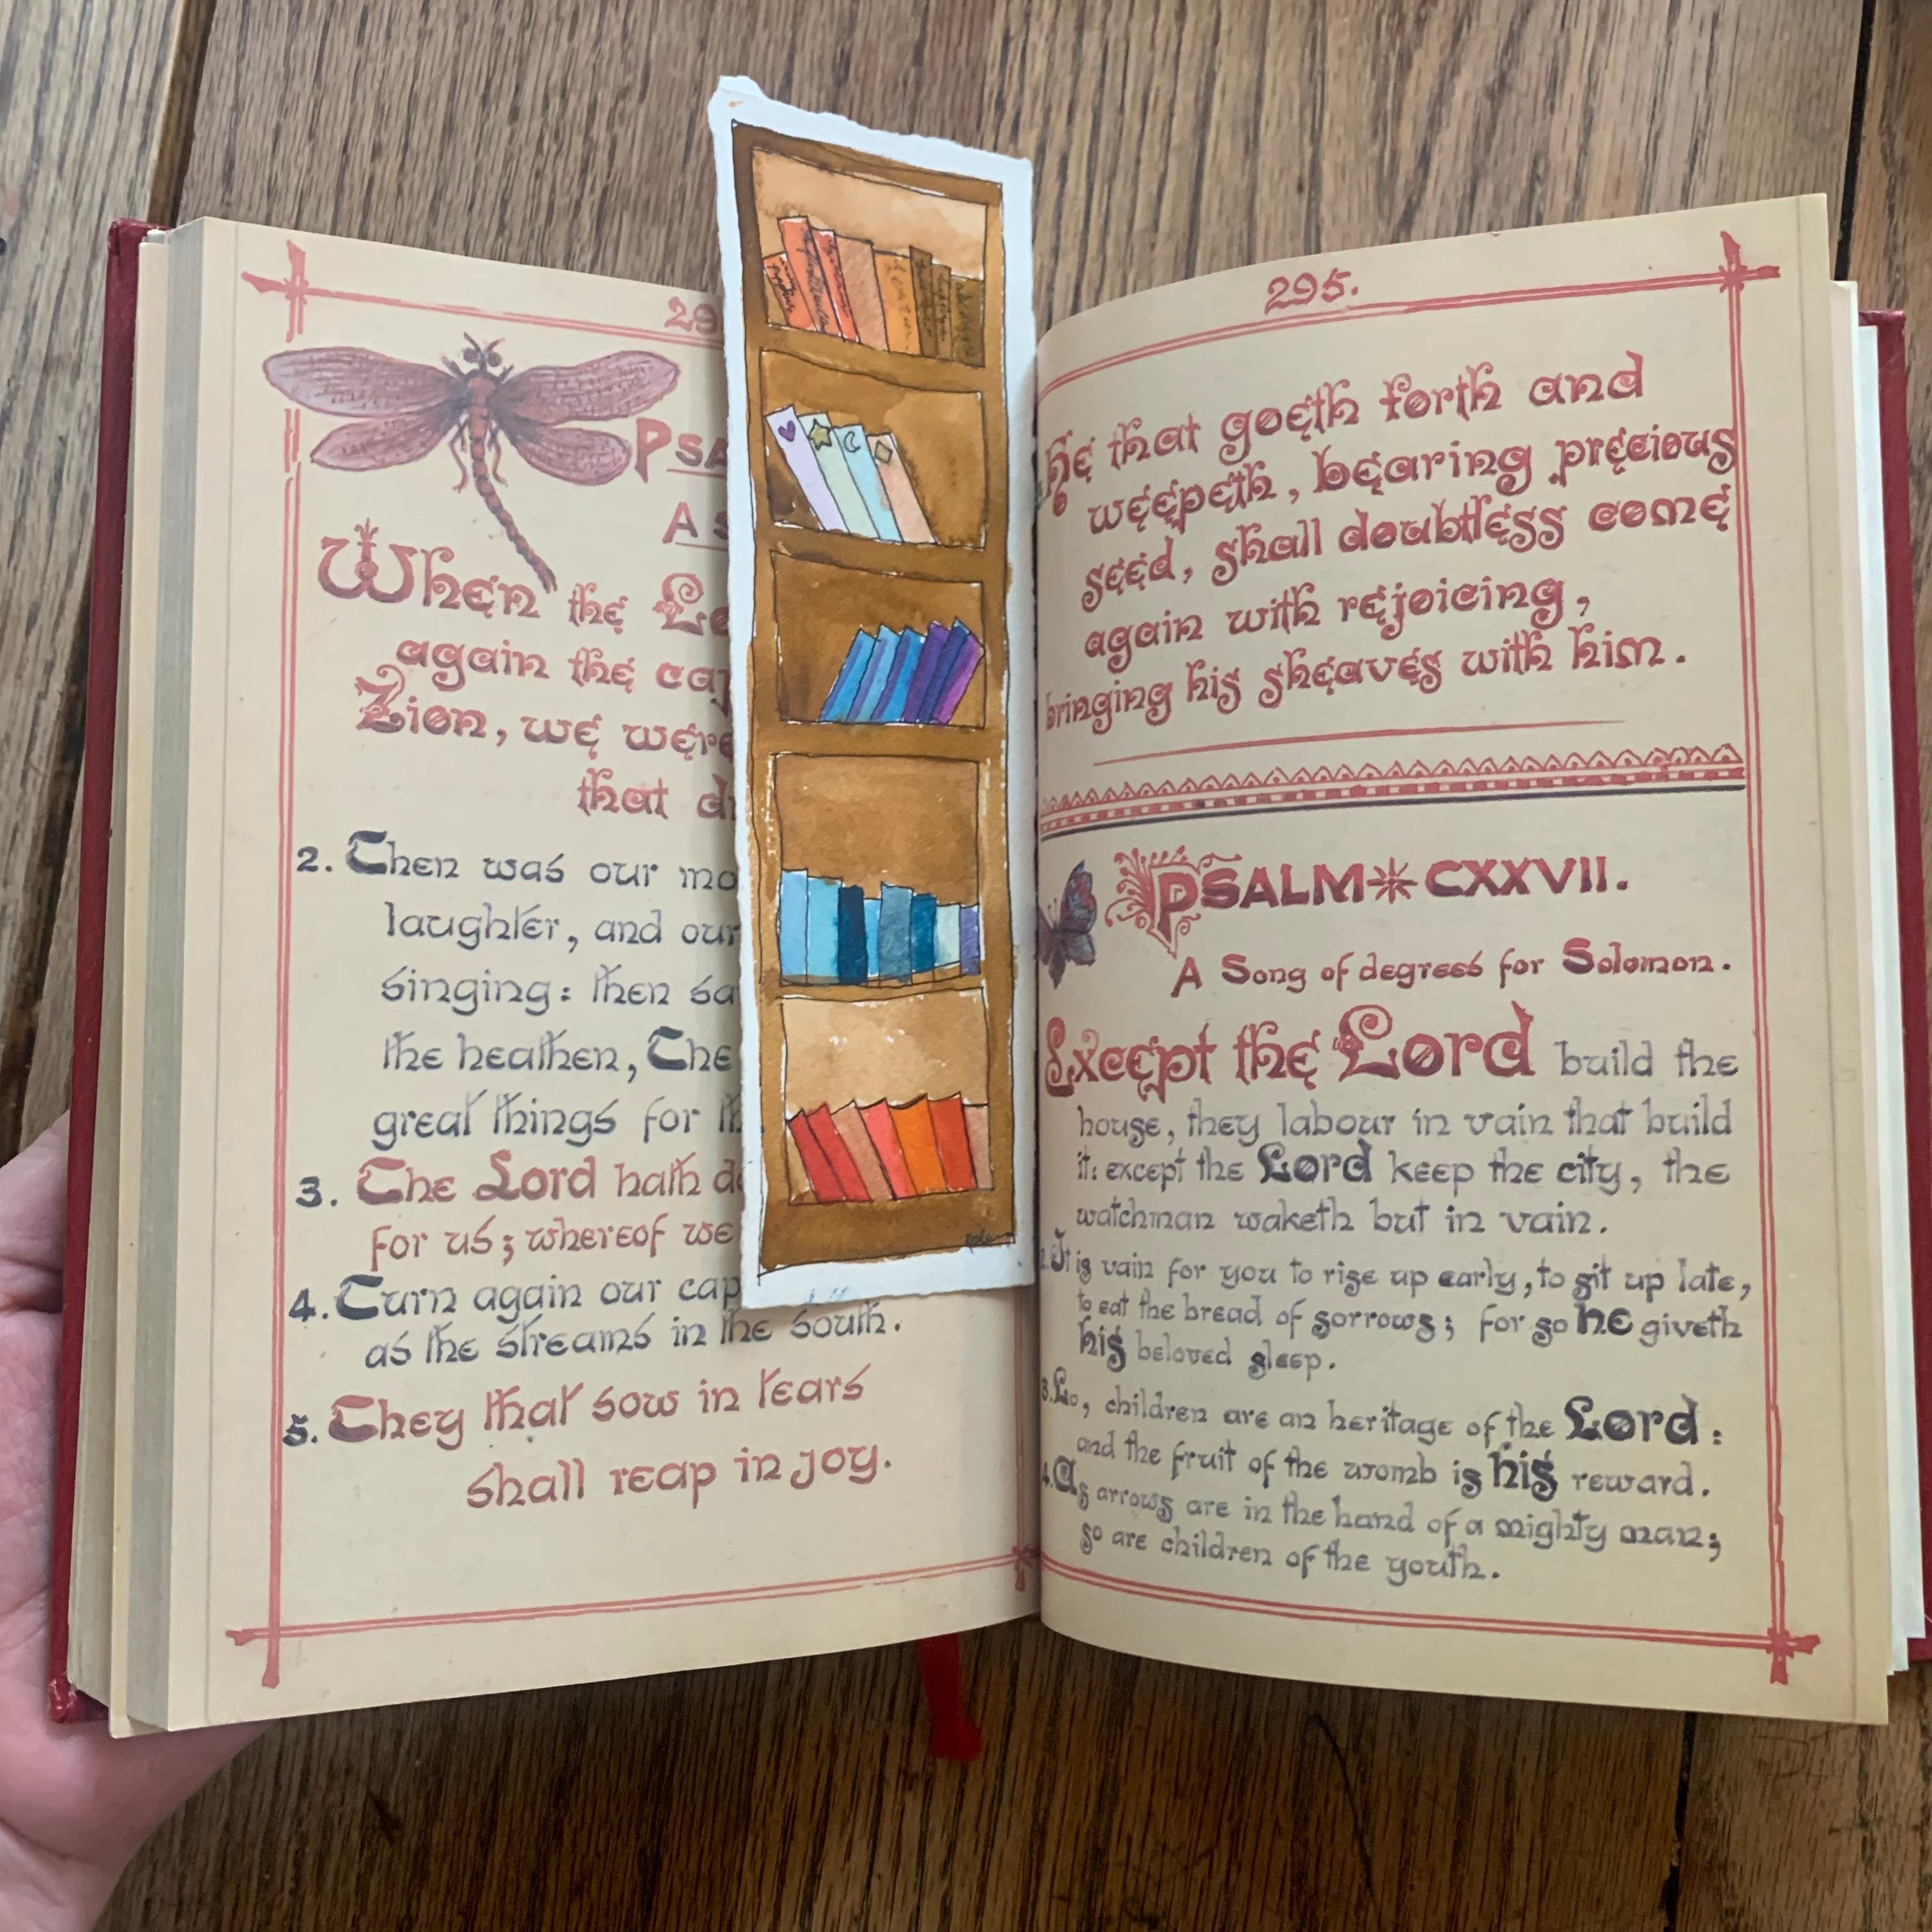 29
PSA
A S
When the Lo
again the cap
Zion, we were
that dr
2. Then was our mo
laughter, and our
singing: then sa
the heathen, The
great things for th
3. The Lord hath do
for us; whereof we
4. Turn again our cap
as the streams in the south.
5. They that sow in tears
shall reap in joy.
295.
He that goeth forth and
weepeth, bearing precious
seed, shall doubtless come
again with rejoicing,
bringing his sheaves with him.
PSALM CXXVII.
A Song of degrees for Solomon.
Except the Lord build the
house, they labour in vain that build
it: except the Lord keep the city, the
watchman waketh but in vain.
2. It is vain for you to rise up early, to sit up late,
to eat the bread of sorrows; for so he giveth
his beloved sleep.
3. Lo, children are an heritage of the Lord:
and the fruit of the womb is his reward.
4. As arrows are in the hand of a mighty man;
so are children of the youth.